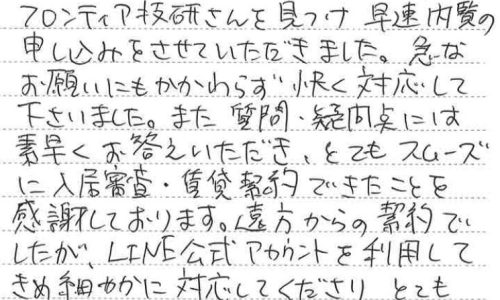 フロンティア技研さんを見つけ 早速内覧の
申し込みをさせていただきました。急な
お願いにもかかわらず 快く対応して
下さいました。また 質問・疑問点には
素早くお答えいただき、とても スムーズ
に入居審査・賃貸契約できたことを
感謝しております。遠方からの契約で
したが、LINE公式アカウントを利用して
きめ細やかに対応してくださり とても